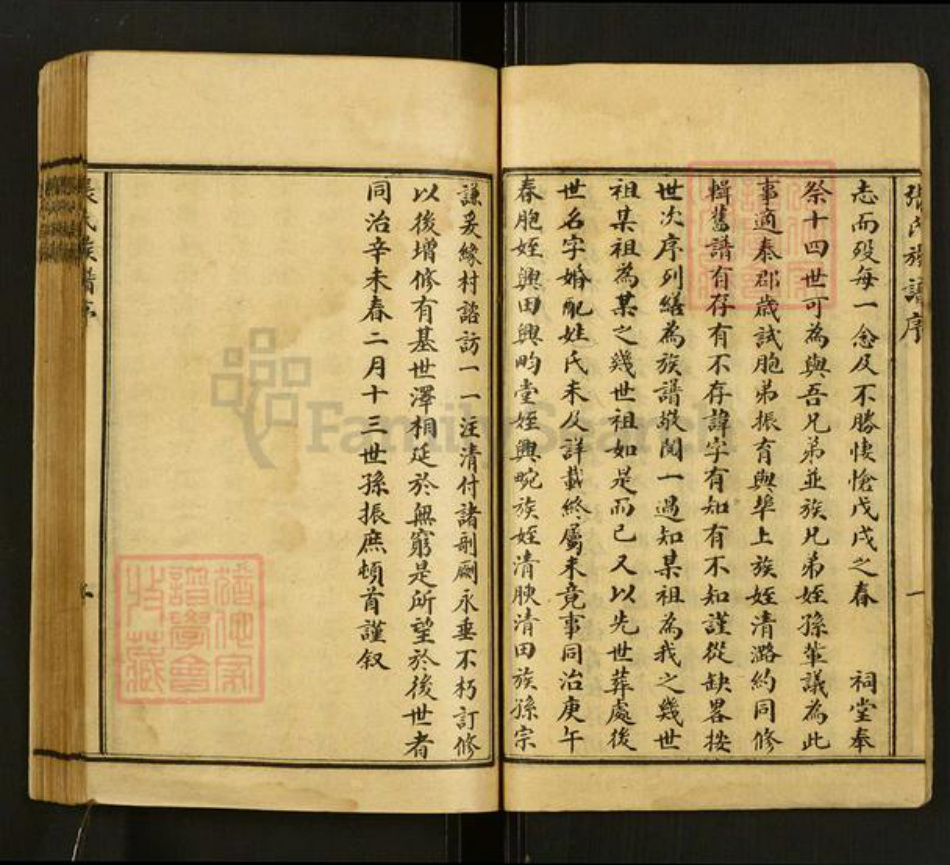 張氏族譜序
一
志而歿每一念及不勝悽愴戊戌之春 祠堂奉
祭十四世可為與吾兄弟並族兄弟姪孫輩議為此
事適泰郡歲試胞弟振育與犖上族姪清潞約同修
輯舊譜有存有不存諱字有知有不知謹從缺畧按
世次序列繕為族譜敬閱一過知某祖為我之幾世
祖某祖為某之幾世祖如是而已又以先世葬處後
世名字婚配姓氏未及詳載終屬未竟事同治庚午
春胞姪興田興畇堂姪興畹族姪清腴清田族孫宗
謙爰緣村諮訪一一注清付諸剞劂永垂不朽訂修
以後增修有基世澤相延於無窮是所望於後世者
同治辛未春二月十三世孫振庶頓首謹叙
張氏族譜序
FamilySearch